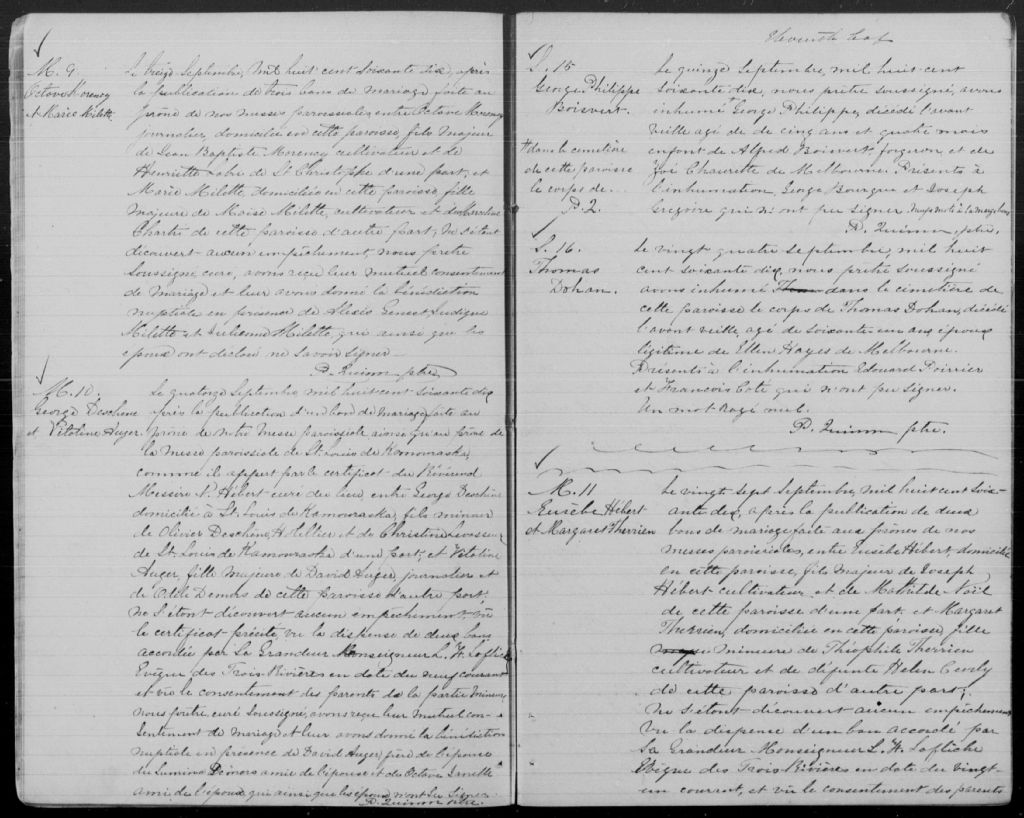 M. 9.
Octave Morency
et Marie Milette
Le treize Septembre, mil huit cent soixante dix, après
la publication de trois bans de mariage faite au
prône de nos messes paroissiales, entre Octave Morency
journalier, domicilié en cette paroisse, fils majeur
de Jean Baptiste Morency cultivateur et de
Henriette de St Christophe d'une part, et
Marie Milette, domiciliée en cette paroisse fille
majeure de Moïse Milette, cultivateur et de
de cette paroisse d'autre part, ne s'étant
découvert aucun empêchement, nous prêtre
soussigné curé, avons reçu leur mutuel consentement
de mariage et leur avons donné la bénédiction
nuptiale en présence de Alexis
Milette et Milette, qui ainsi que les
époux ont déclaré ne savoir signer.
P. Quinn ptre.
M. 10.
George Deschene
et Vitaline Auger.
Le quatorze Septembre mil huit cent soixante dix
après la publication d'un ban de mariage faite au
prone de notre Messe paroissiale ainsi qu'au prône de
la messe paroissiale de St. Louis de Kamouraska,
comme il appert par le certificat du Révérend
Messire N. Hébert curé du lieu, entre George Deschène
domicilié à St. Louis de Kamouraska, fils mineur
de Olivier Deschène, Hôtellier et de Christine Levasseur
de St. Louis de Kamouraska d'une part, et Vitaline
Auger, fille majeure de David Auger, journalier et
de Odile Demers de cette paroisse d'autre part;
ne s'étant découvert aucun empêchement, vû
le certificat précité, vu la dispense de deux bans
accordée par Sa Grandeur Monseigneur L. F. Laflèche
Evêque des Trois Rivières en date du neuf courant
et vû le consentement des parents de la partie mineure
nous prêtre, curé soussigné, avons reçu leur mutuel con-
sentement de mariage et leur avons donné la bénédiction
nuptiale en présence de David Auger, père de l'épouse
du Demers amie de l'épouse et de Octave
ami de l'époux qui ainsi que les époux n'ont su signer.
P. Quinn ptre.
S. 15
George Philippe
Boisvert.
# dans le cimetière
de cette paroisse
le corps de.
P. Q.
Le quinze Septembre, mil huit cent
soixante dix, nous prêtre soussigné, avons
inhumé # George Philippe, décédé l'avant
veille agé de de cinq ans et quatre mois
enfant de Alfred Boisvert forgeron et de
Zoé Chaurette de Melbourne. Présents à
l'inhumation, George Bourque et Joseph
Gregoire qui n'ont pu signer.
P. Quinn, ptre.
S. 16.
Thomas
Dohan.
Le vingt quatre Septembre, mil huit
cent soixante dix, nous prêtre soussigné
avons inhumé dans le cimetière de
cette paroisse le corps de Thomas Dohan, décédé
l'avant veille, agé de soixante un ans époux
légitime de Ellen Hayes de Melbourne.
Présents à l'inhumation Edouard Poirrier
et Francois Coté qui n'ont pu signer.
Un mot rayé nul.
P. Quinn ptre.
M. 11
Eusèbe Hébert
et Margaret Therrien
Le vingt sept Septembre, mil huit cent soix-
ante dix, après la publication de deux
bans de mariage faite aux prônes de nos
messes paroissiales, entre Eusèbe Hébert, domicilié
en cette paroisse, fils majeur de Joseph
Hébert cultivateur et de Mathilde Noël
de cette paroisse d'une part, et Margaret
Therrien, domiciliée en cette paroisse, fille
mineure de Théophile Therrien
cultivateur et de défunte Helen
de cette paroisse d'autre part;
ne s'étant découvert aucun empêchement
vu la dispense d'un ban accordé par
Sa Grandeur Monseigneur L. F. Laflèche
Evêque des Trois Rivières en date du vingt-
un courant, et vu le consentement des parents